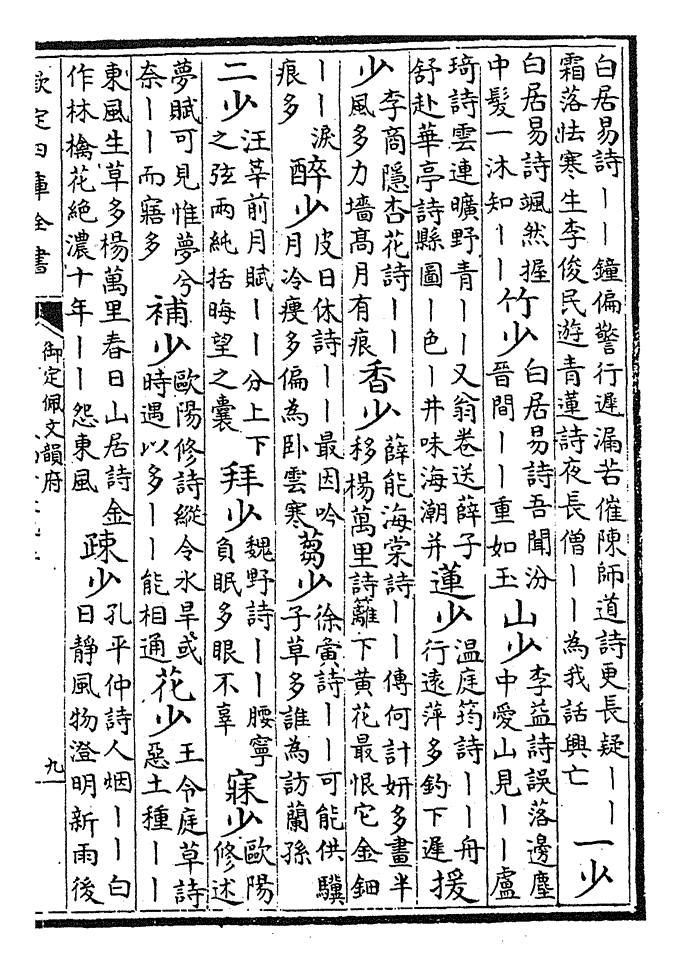 白居易詩——鐘偏警行遲漏苦催陳師道詩更長疑——
霜落怯寒生李俊民遊青蓮詩夜長僧——為我話興亡
一少
白居易詩颯然握
中髮一沐知——
竹少
白居易詩吾聞汾
晉間——重如玉
山少
李益詩誤落邊塵
中愛山見——盧
琦詩雲連曠野青——又翁卷送薛子
舒赴華亭詩縣圖—色—井味海潮并
蓮少
温庭筠詩——舟
行遠萍多釣下遲
援
少
李商隱杏花詩——
風多力墻髙月有痕
香少
薛能海棠詩——傳何計妍多畫半
移楊萬里詩籬下黄花最恨它金鈿
——淚
痕多
醉少
皮日休詩——最因吟
月冷瘦多偏為卧雲寒
芻少
徐夤詩——可能供驥
子草多誰為訪蘭孫
二少
汪莘前月賦——分上下
之弦兩純括晦望之囊
拜少
魏野詩——腰寧
負眠多眼不辜
寐少
歐陽
修述
夢賦可見惟夢兮
奈——而寤多
補少
歐陽修詩縱令水旱或
時遇以多——能相通
花少
王令庭草詩
惡土種——
東風生草多楊萬里春日山居詩金
作林檎花絶濃十年——怨東風
疎少
孔平仲詩人烟——白
日靜風物澄明新雨後
欽定四庫全書
御定佩文韻府
九